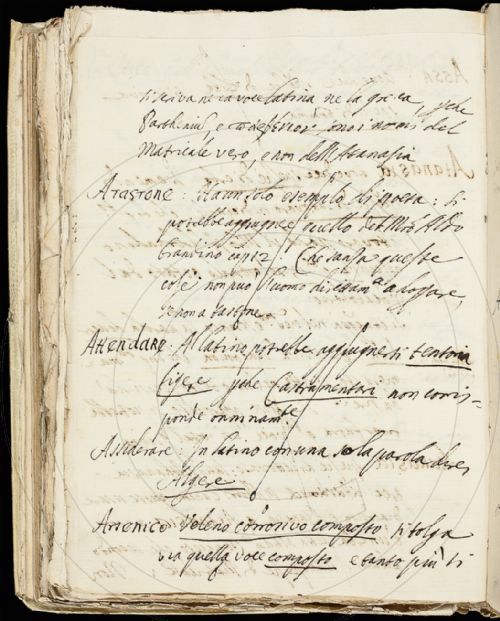 si scriva ne la voce latina ne la greca, perche
Parthenium, e παρθένιον sono i nomi del
Matricale vero, e non dell'Atanasia
A TASTONE: un solo esempio di poeta: si
potrebbe aggiugnere quello del Mro Aldo
brandino cap 12: Che sanza queste
cose non può l'uomo adoprare,
se non a tastone
ATTENDARE: Al latino potrebbe aggiugnersi tentoria
figere perche Castrametari non corris=
ponde onninamte.
Assiderare: In latino con una sola parola direi
Algere
ARSENICO: Veleno corrosivo composto si tolga
via quella voce composto e tanto più si